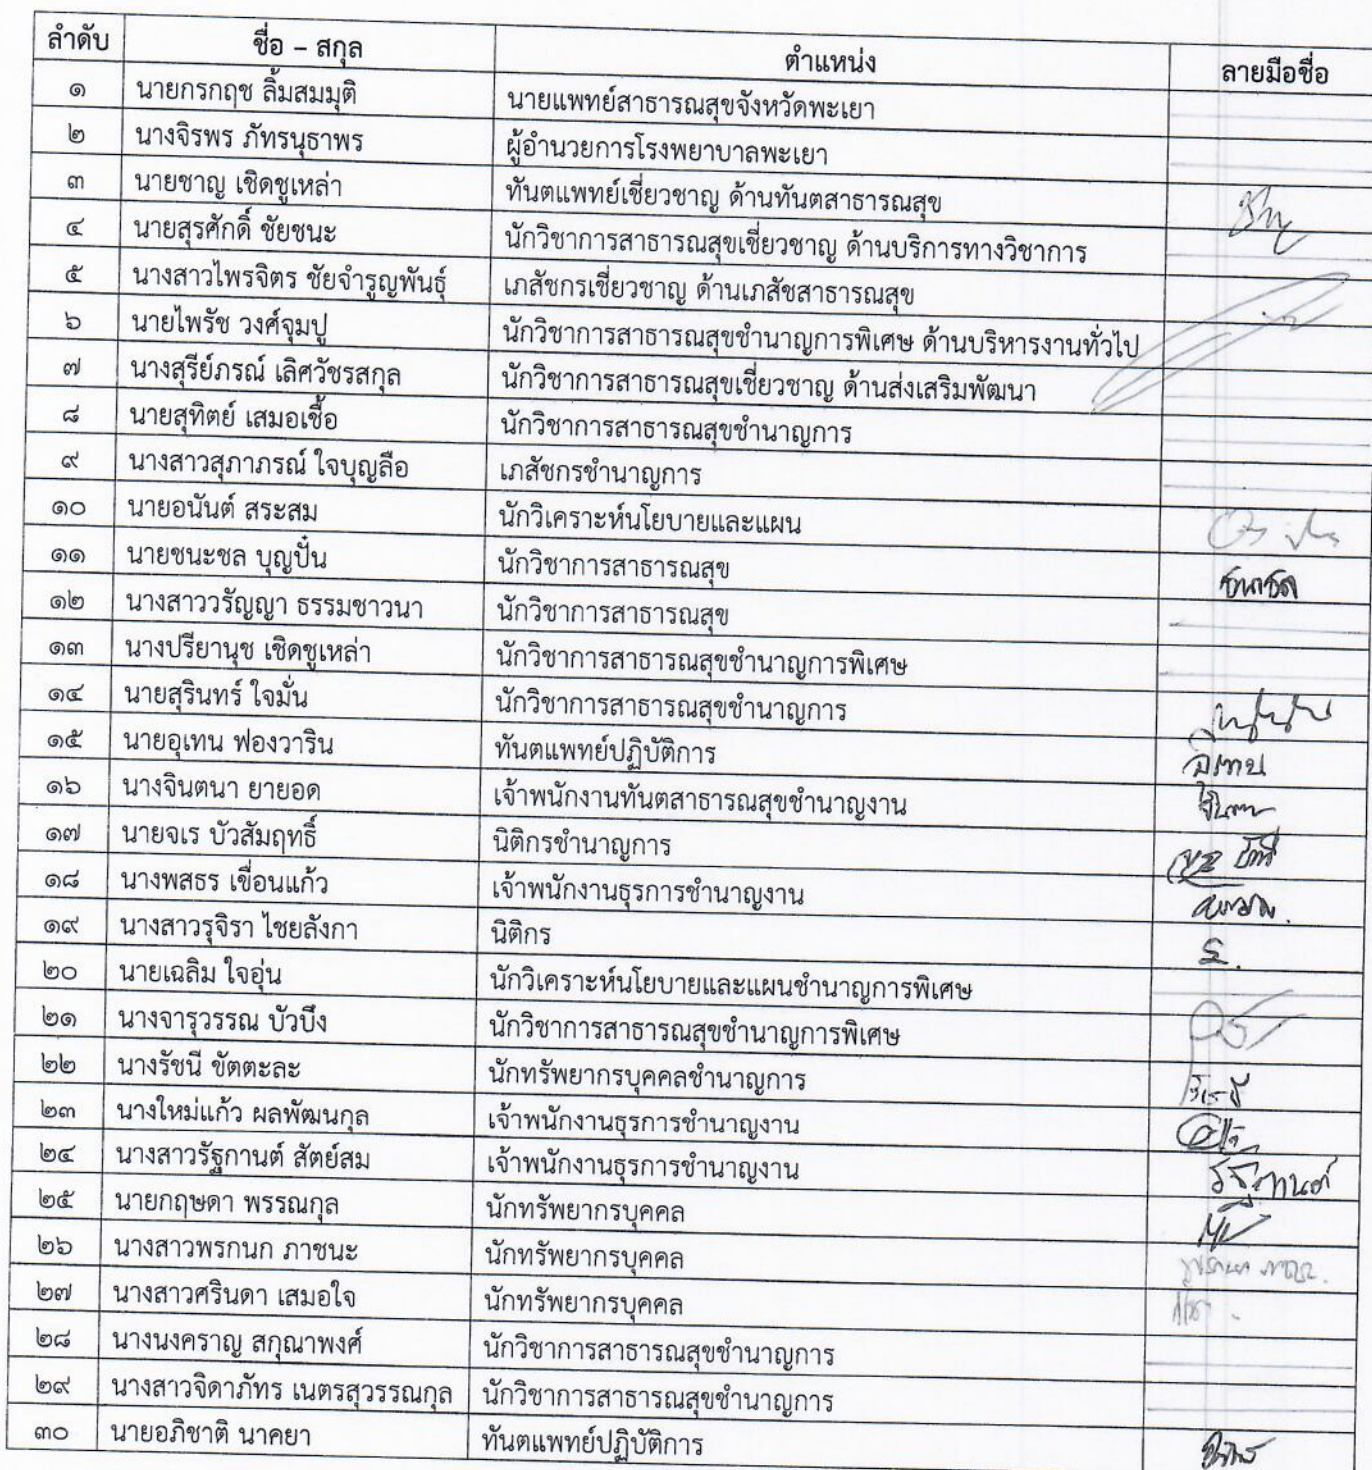 ลำดับ ชื่อ – สกุล ตำแหน่ง ลายมือชื่อ
๑ นายกรกฤช ลิ้มสมมุติ นายแพทย์สาธารณสุขจังหวัดพะเยา
๒ นางจิรพร ภัทรนุธาพร ผู้อำนวยการโรงพยาบาลพะเยา
๓ นายชาญ เชิดชูเหล่า ทันตแพทย์เชี่ยวชาญ ด้านทันตสาธารณสุข
๔ นายสุรศักดิ์ ชัยชนะ นักวิชาการสาธารณสุขเชี่ยวชาญ ด้านบริการทางวิชาการ
๕ นางสาวไพรจิตร ชัยจำรูญพันธุ์ เภสัชกรเชี่ยวชาญ ด้านเภสัชสาธารณสุข
๖ นายไพรัช วงศ์จุมปู นักวิชาการสาธารณสุขชำนาญการพิเศษ ด้านบริหารงานทั่วไป
๗ นางสุรีย์ภรณ์ เลิศวัชรสกุล นักวิชาการสาธารณสุขเชี่ยวชาญ ด้านส่งเสริมพัฒนา
๘ นายสุทิตย์ เสมอเชื้อ นักวิชาการสาธารณสุขชำนาญการ
๙ นางสาวสุภาภรณ์ ใจบุญลือ เภสัชกรชำนาญการ
๑๐ นายอนันต์ สระสม นักวิเคราะห์นโยบายและแผน
๑๑ นายชนะชล บุญปั๋น นักวิชาการสาธารณสุข ชนะชล
๑๒ นางสาววรัญญา ธรรมชาวนา นักวิชาการสาธารณสุข
๑๓ นางปรียานุช เชิดชูเหล่า นักวิชาการสาธารณสุขชำนาญการพิเศษ
๑๔ นายสุรินทร์ ใจมั่น นักวิชาการสาธารณสุขชำนาญการ
๑๕ นายอุเทน ฟองวาริน ทันตแพทย์ปฏิบัติการ
๑๖ นางจินตนา ยายอด เจ้าพนักงานทันตสาธารณสุขชำนาญงาน
๑๗ นายจเร บัวสัมฤทธิ์ นิติกรชำนาญการ
๑๘ นางพสธร เขื่อนแก้ว เจ้าพนักงานธุรการชำนาญงาน
๑๙ นางสาวรุจิรา ไชยลังกา นิติกร
๒๐ นายเฉลิม ใจอุ่น นักวิเคราะห์นโยบายและแผนชำนาญการพิเศษ
๒๑ นางจารุวรรณ บัวบึง นักวิชาการสาธารณสุขชำนาญการพิเศษ
๒๒ นางรัชนี ขัตตะละ นักทรัพยากรบุคคลชำนาญการ
๒๓ นางใหม่แก้ว ผลพัฒนกุล เจ้าพนักงานธุรการชำนาญงาน
๒๔ นางสาวรัฐกานต์ สัตย์สม เจ้าพนักงานธุรการชำนาญงาน รัฐกานต์
๒๕ นายกฤษดา พรรณกุล นักทรัพยากรบุคคล
๒๖ นางสาวพรกนก ภาชนะ นักทรัพยากรบุคคล
๒๗ นางสาวศรินดา เสมอใจ นักทรัพยากรบุคคล
๒๘ นางนงคราญ สกุณาพงศ์ นักวิชาการสาธารณสุขชำนาญการ
๒๙ นางสาวจิดาภัทร เนตรสุวรรณกุล นักวิชาการสาธารณสุขชำนาญการ
๓๐ นายอภิชาติ นาคยา ทันตแพทย์ปฏิบัติการ